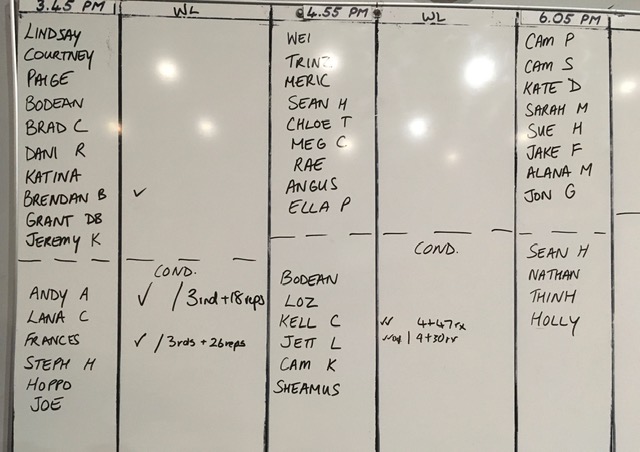 3.45 PM
WL
LINDSAY
COURTNEY
PAIGE
BODEAN
BRAD C
DANI R
KATINA
BRENDAN B ✓
GRANT DB
JEREMY K
COND.
ANDY A ✓ / 3rnd + 18 reps
LANA C
FRANCES ✓ / 3rds + 26 reps
STEPH H
HOPPO
JOE
4.55 PM
WL
WEI
TRINZ
MERIC
SEAN H
CHLOE T
MEG C
RAE
ANGUS
ELLA P
COND.
BODEAN
LOZ
KELL C 4+47 rx
JETT L
CAM K
SHEAMUS
6.05 PM
CAM P
CAM S
KATE D
SARAH M
SUE H
JAKE F
ALANA M
JON G
SEAN H
NATHAN
THINH
HOLLY